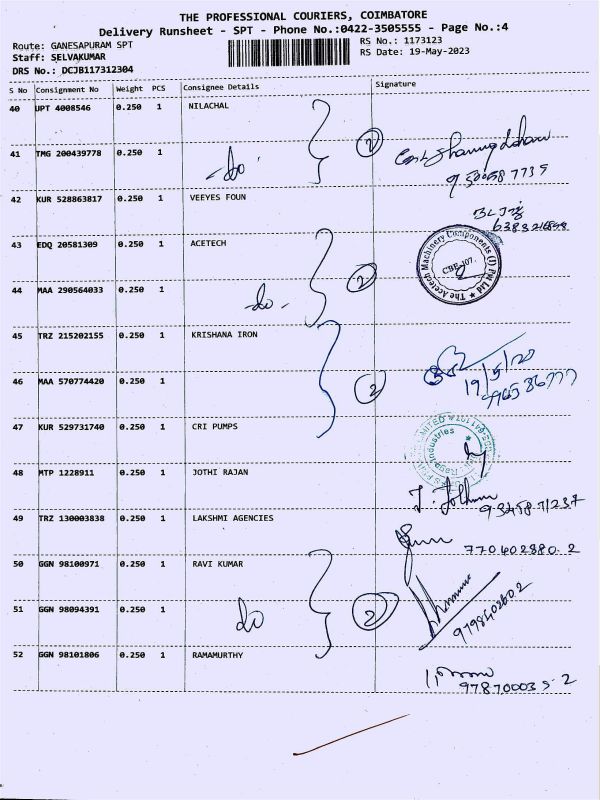 THE PROFESSIONAL COURIERS, COIMBATORE
Delivery Runsheet - SPT - Phone No.:0422-3505555 - Page No.:4
Route: GANESAPURAM SPT
RS No.: 1173123
Staff: SELVAKUMAR
RS Date: 19-May-2023
DRS No.: DCJB117312304
S No Consignment No Weight PCS Consignee Details Signature
40 UPT 4008546 0.250 1 NILACHAL
2
41 TMG 200439778 0.250 1 do
42 KUR 528863817 0.250 1 VEEYES FOUN
43 EDQ 20581309 0.250 1 ACETECH
The Acetech Machinery Components (I) Pvt Ltd
CBE-107.
2
44 MAA 290564033 0.250 1 do
45 TRZ 215202155 0.250 1 KRISHANA IRON
19/5/20
46 MAA 570774420 0.250 1
2
47 KUR 529731740 0.250 1 CRI PUMPS
48 MTP 1228911 0.250 1 JOTHI RAJAN
49 TRZ 130003838 0.250 1 LAKSHMI AGENCIES
770402880.2
50 GGN 98100971 0.250 1 RAVI KUMAR
51 GGN 98094391 0.250 1 do
2
9798402602
52 GGN 98101806 0.250 1 RAMAMURTHY